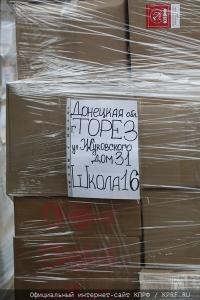 Донецкая обл.
г. ТОРЕЗ
ул. Жуковского
ДОМ 31
Школа 16
Официальный интернет-сайт КПРФ / KPRF.RU